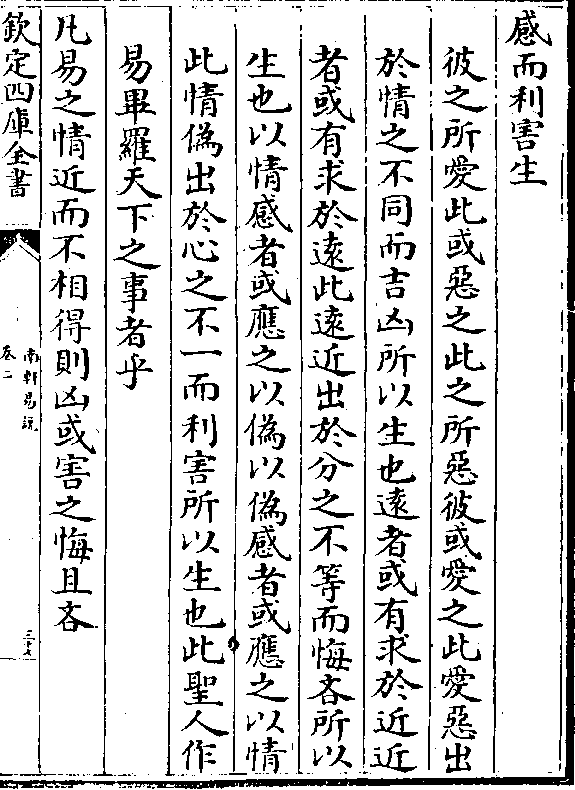 感而利害生
彼之所愛此或惡之此之所惡彼或愛之此愛惡出
於情之不同而吉凶所以生也遠者或有求於近近
者或有求於遠此遠近出於分之不等而悔吝所以
生也以情感者或應之以偽以偽感者或應之以情
此情偽出於心之不一而利害所以生也此聖人作
易畢羅天下之事者乎
凡易之情近而不相得則凶或害之悔且吝
欽定四庫全書
南軒易說
卷二
三十七